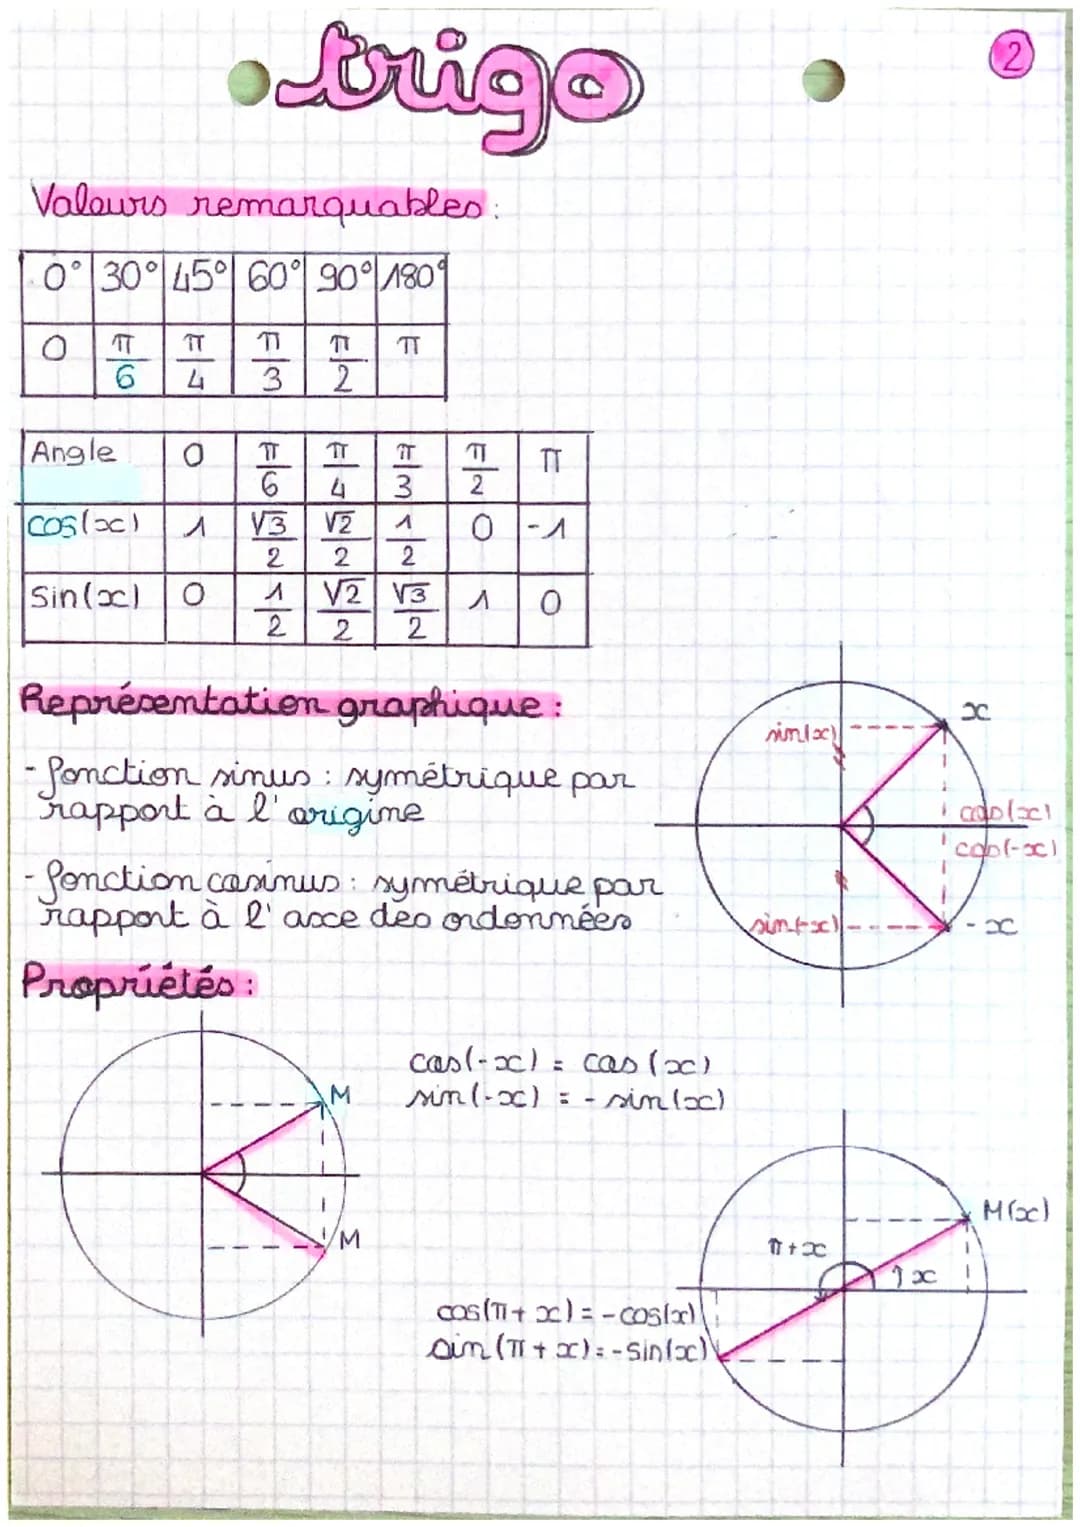 trigo
2
Valeurs remarquables :
0° 30° 45° 60° 90° 180°
0 π/6 π/4 π/3 π/2 π
Angle 0 π/6 π/4 π/3 π/2 π
cos(x) 1 √3/2 √2/2 1/2 0 -1
Sin(x) 0 1/2 √2/2 √3/2 1 0
Représentation graphique :
- fonction sinus : symétrique par
rapport à l'origine
- fonction cosinus : symétrique par
rapport à l'axe des ordonnées
x
sin(x)
cos(x)
cos(-x)
sin(-x)
-x
Propriétés :
M
M
cos(-x) = cos(x)
sin(-x) = - sin(x)
M(x)
π+x
x
cos(π+x) = -cos(x)
sin(π+x) = -sin(x)